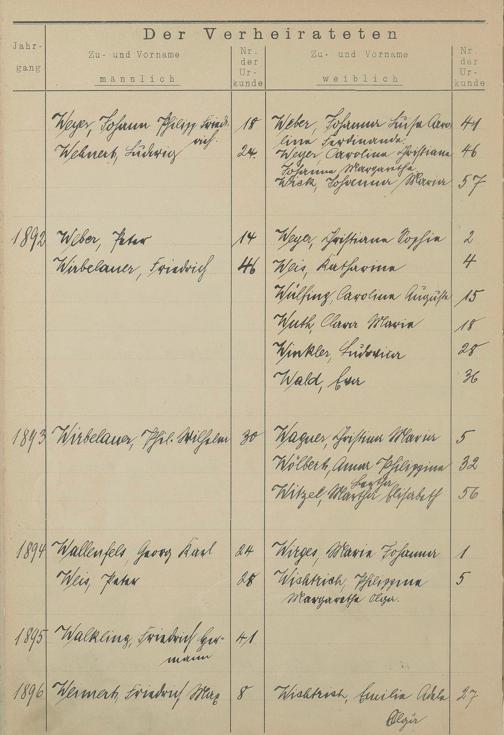 Der Verheirateten
Jahr-
gang
Zu- und Vorname
männlich
Nr.
der
Ur-
kunde
Zu- und Vorname
weiblich
Nr.
der
Ur-
kunde
Weyer, Johann Philipp Fried- 18 Weber, Johanna Luise Caro 41
rich. line Ferdinande.
Wehnert, Ludwig 24. Weyer, Caroline Christiane 46
Johanna Margarethe
Wick, Johanna Maria 57
1892 Weber, Peter 14 Weyer, Christiane Sophie 2
Wirbelauer, Friedrich 46 Weis, Katharine 4
Wülfing, Caroline Auguste 15
Wuth, Clara Marie 18
Winkler, Ludovica 28
Wald, Eva 36
1893 Wirbelauer, Phil. Wilhelm 30 Wagner, Christina Maria 5
Wölbert, Anna Philippine 32
Bertha
Witzel, Martha Elisabeth 56
1894 Wallenfels, Georg Karl 24 Wirges, Marie Johanna 1
Weis, Peter 28 Wichtrich, Philippine 5
Margarethe Olga.
1895 Walkling, Friedrich Her- 41
mann
1896 Wennert, Friedrich Max 8 Wichtrich, Emilie Adele 27
Olga